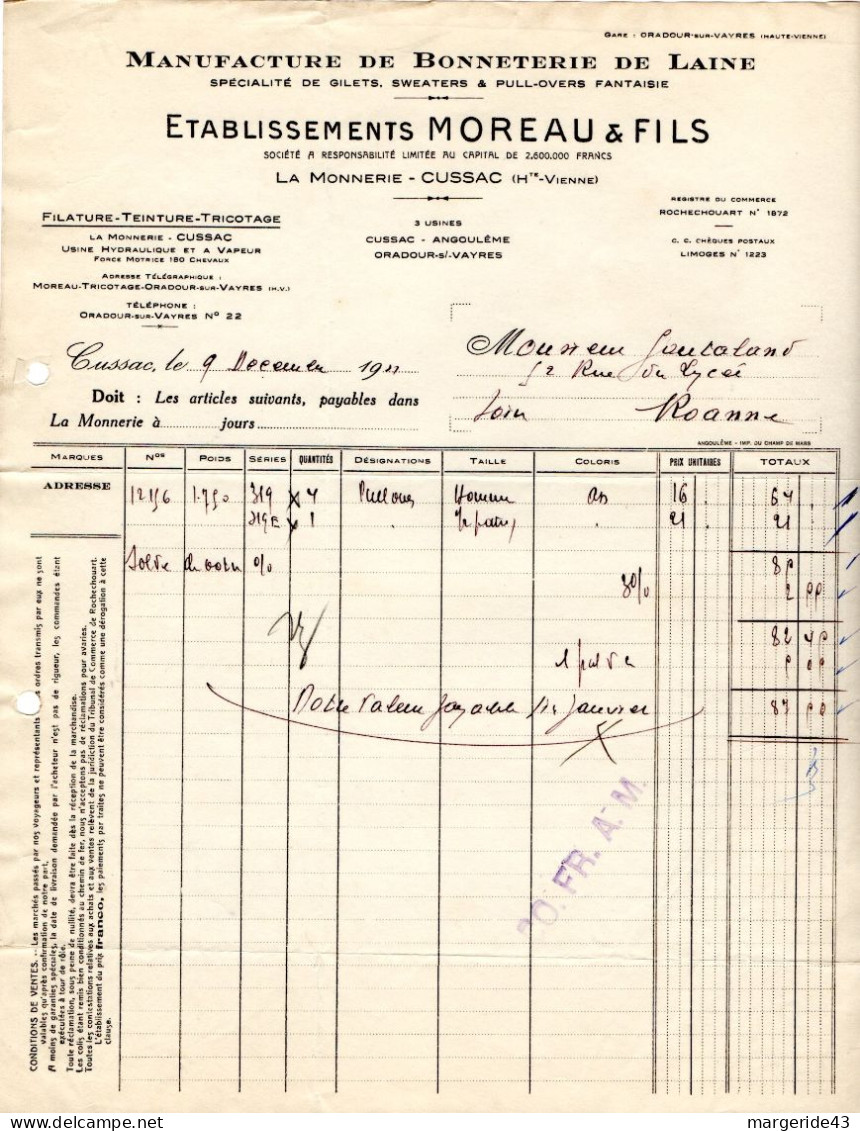 GARE : ORADOUR-SUR-VAYRES (HAUTE-VIENNE)
MANUFACTURE DE BONNETERIE DE LAINE
SPÉCIALITÉ DE GILETS, SWEATERS & PULL-OVERS FANTAISIE
ETABLISSEMENTS MOREAU & FILS
SOCIÉTÉ A RESPONSABILITÉ LIMITÉE AU CAPITAL DE 2.600.000 FRANCS
LA MONNERIE - CUSSAC (HTE-VIENNE)
FILATURE-TEINTURE-TRICOTAGE
LA MONNERIE - CUSSAC
USINE HYDRAULIQUE ET A VAPEUR
FORCE MOTRICE 180 CHEVAUX
ADRESSE TÉLÉGRAPHIQUE :
MOREAU-TRICOTAGE-ORADOUR-SUR-VAYRES (H.V.)
TÉLÉPHONE :
ORADOUR-SUR-VAYRES N° 22
3 USINES
CUSSAC - ANGOULÊME
ORADOUR-S/-VAYRES
REGISTRE DU COMMERCE
ROCHECHOUART N° 1872
C. C. CHÈQUES POSTAUX
LIMOGES N° 1223
Cussac, le 9 Decembre 19
Monsieur
52 Rue du Lycée
Roanne
Doit : Les articles suivants, payables dans
La Monnerie à jours
ANGOULÊME - IMP. DU CHAMP DE MARS
MARQUES Nos POIDS SÉRIES QUANTITÉS DÉSIGNATIONS TAILLE COLORIS PRIX UNITAIRES TOTAUX
ADRESSE 319 4 Pullover Homme 16
319 E 1 21 21
Solde
82 40
Janvier
FR. A. M.
CONDITIONS DE VENTES. — Les marchés passés par nos voyageurs et représentants ordres transmis par eux ne sont
valables qu'après confirmation de notre part.
A moins de garanties spéciales, la date de livraison demandée par l'acheteur n'est pas de rigueur, les commandes étant
exécutées à tour de rôle.
Toute réclamation, sous peine de nullité, devra être faite dès la réception de la marchandise.
Les colis étant remis bien conditionnés au chemin de fer, nous n'acceptons pas de réclamations pour avaries.
Toutes les contestations relatives aux achats et aux ventes relèvent de la juridiction du Tribunal de Commerce de Rochechouart.
L'établissement du prix franco, les paiements par traites ne peuvent être considérés comme une dérogation à cette
clause.
margeride43